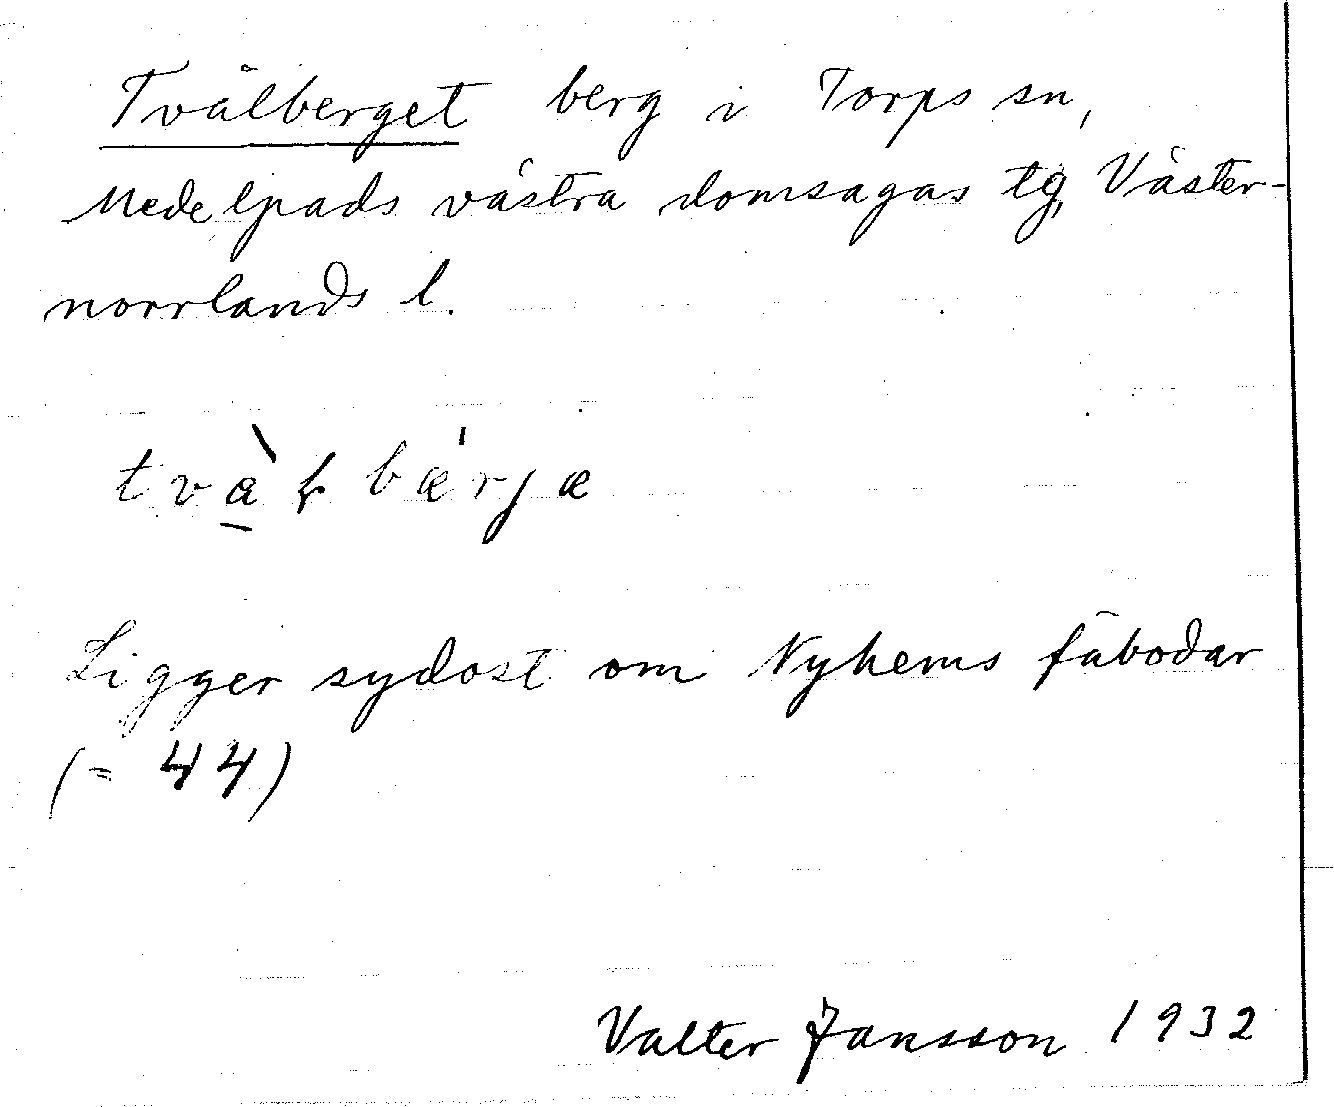 Tvålberget berg i Torps sn,
Medelpads västra domsagas tg, Väster-
norrlands l.
Ligger sydost om Nyhems fäbodar
(= 44)
Valter Jansson 1932